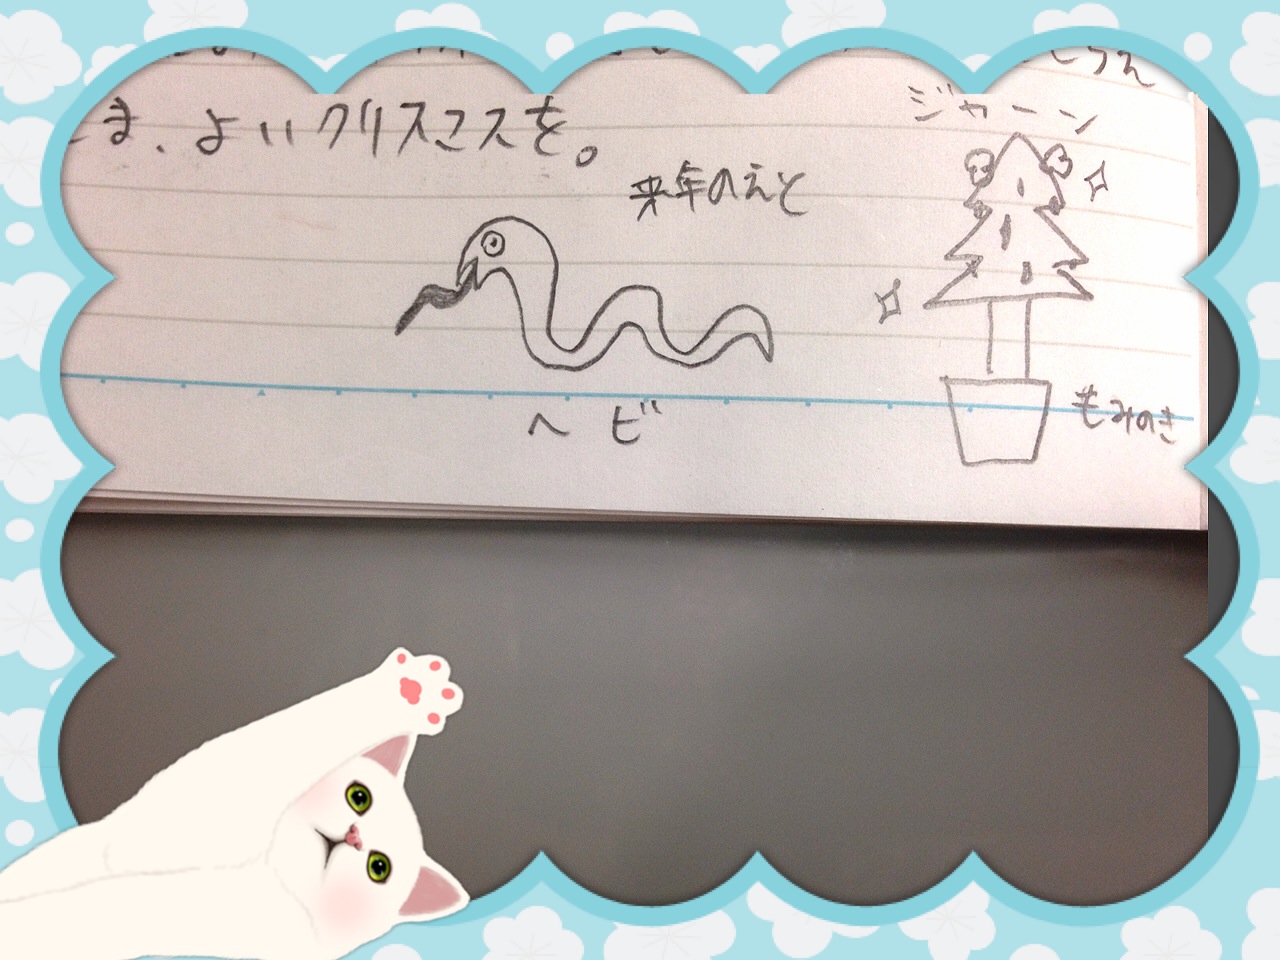 ま、よいクリスマスを。
ジャーン
来年のえと
ヘビ
もみのき